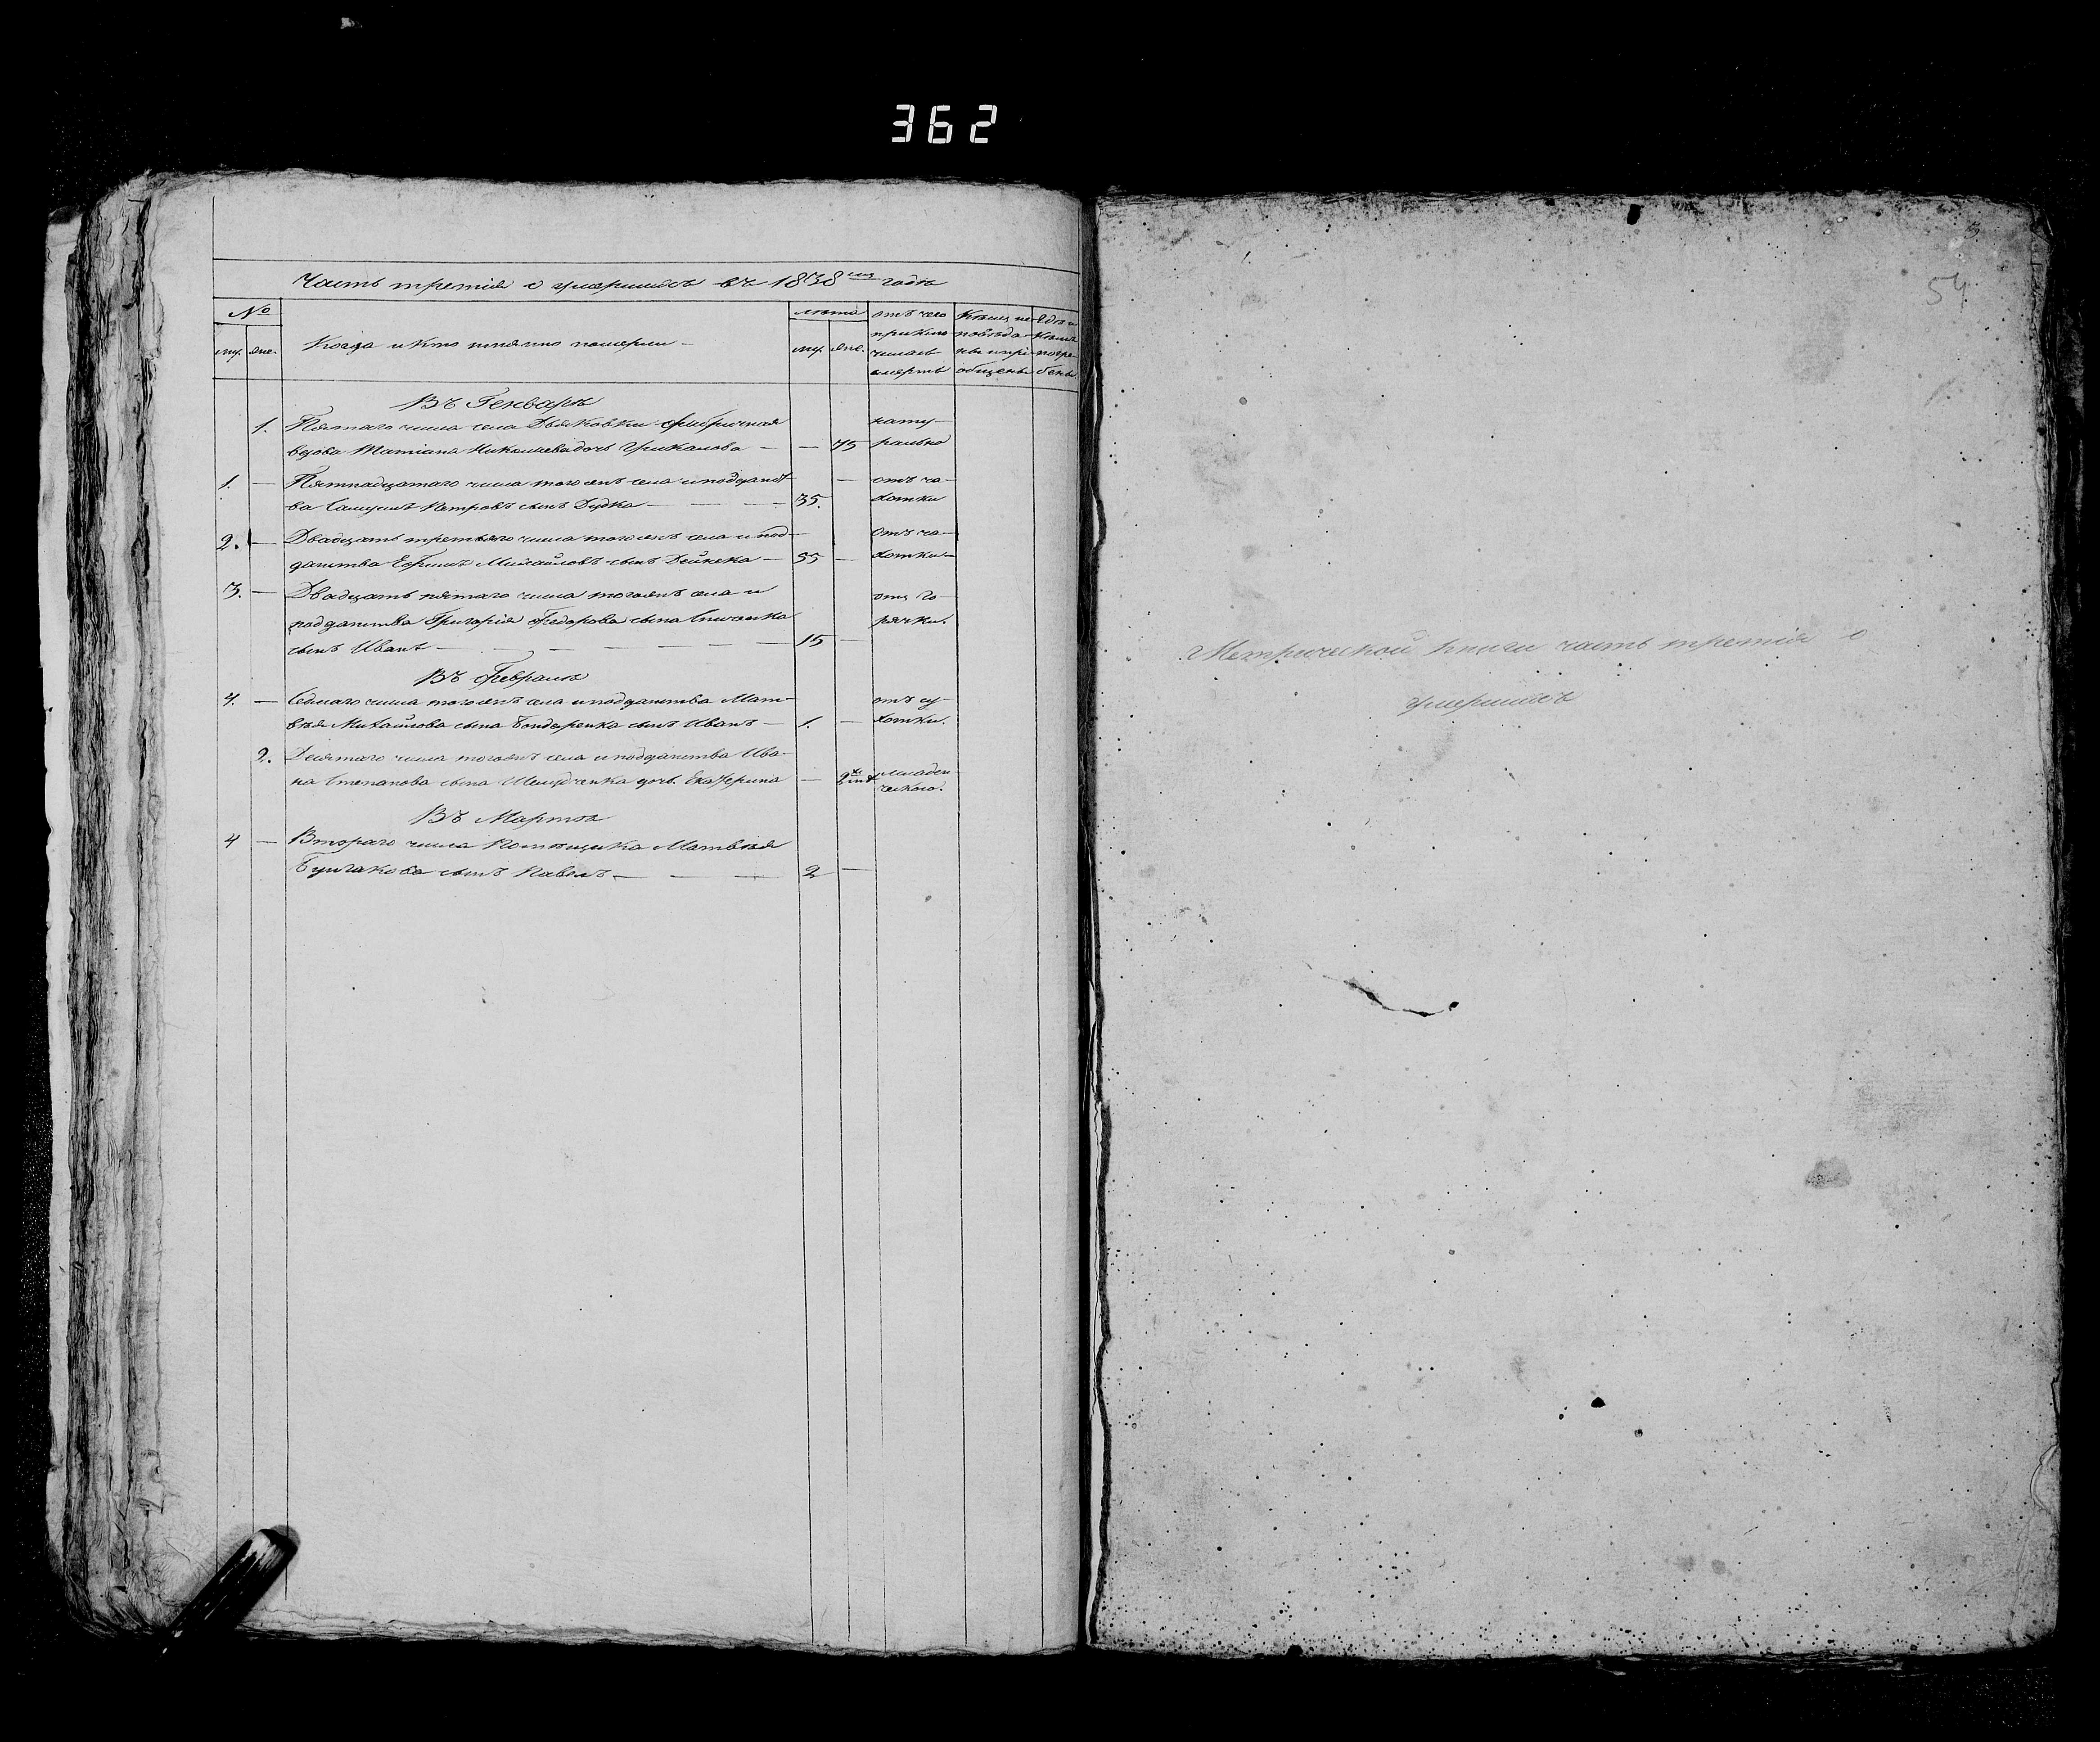 362
Часть третія о умершихъ въ 1838мъ годѣ
№
муж. жен.
Когда и Кто имянно померли
лѣта
муж. жен.
отъ чего приключилась смерть
Кѣмъ исповѣданы и пріобщены
Гдѣ и Кѣмъ погребены
Въ Генварѣ
1. Пятаго числа села Дьяковки
вдова Татіана Николаева дочь — — 75 натурально
1. — Пятнадцатаго числа того жъ села и подданст
ва Самуилъ Петровъ сынъ Дудка — — — 35. — отъ чахотки
2. — Двадцать третьяго числа того жъ села и под-
данства Ефимъ Михайловъ сынъ Дейнека — 55 — Отъ чахотки
3. — Двадцать пятаго числа тогожъ села и
подданства Григорія Федорова сына
сынъ Иванъ — — — — — 15 — отъ горячки.
Въ Февралѣ
4. — Седмаго числа того жъ села и подданства Мат-
вѣя Михайлова сына Бондаренка сынъ Иванъ — 1. — отъ сухотки.
2. Десятаго числа тогожъ села и подданства Ива-
на Степанова сына дочь Екатерина — 2 младенческого.
Въ Мартѣ
4 — Втораго числа Помѣщика Матвѣя
Булгакова сынъ Павелъ — — — 2 —
54
Метрической книги часть третія о
умершихъ